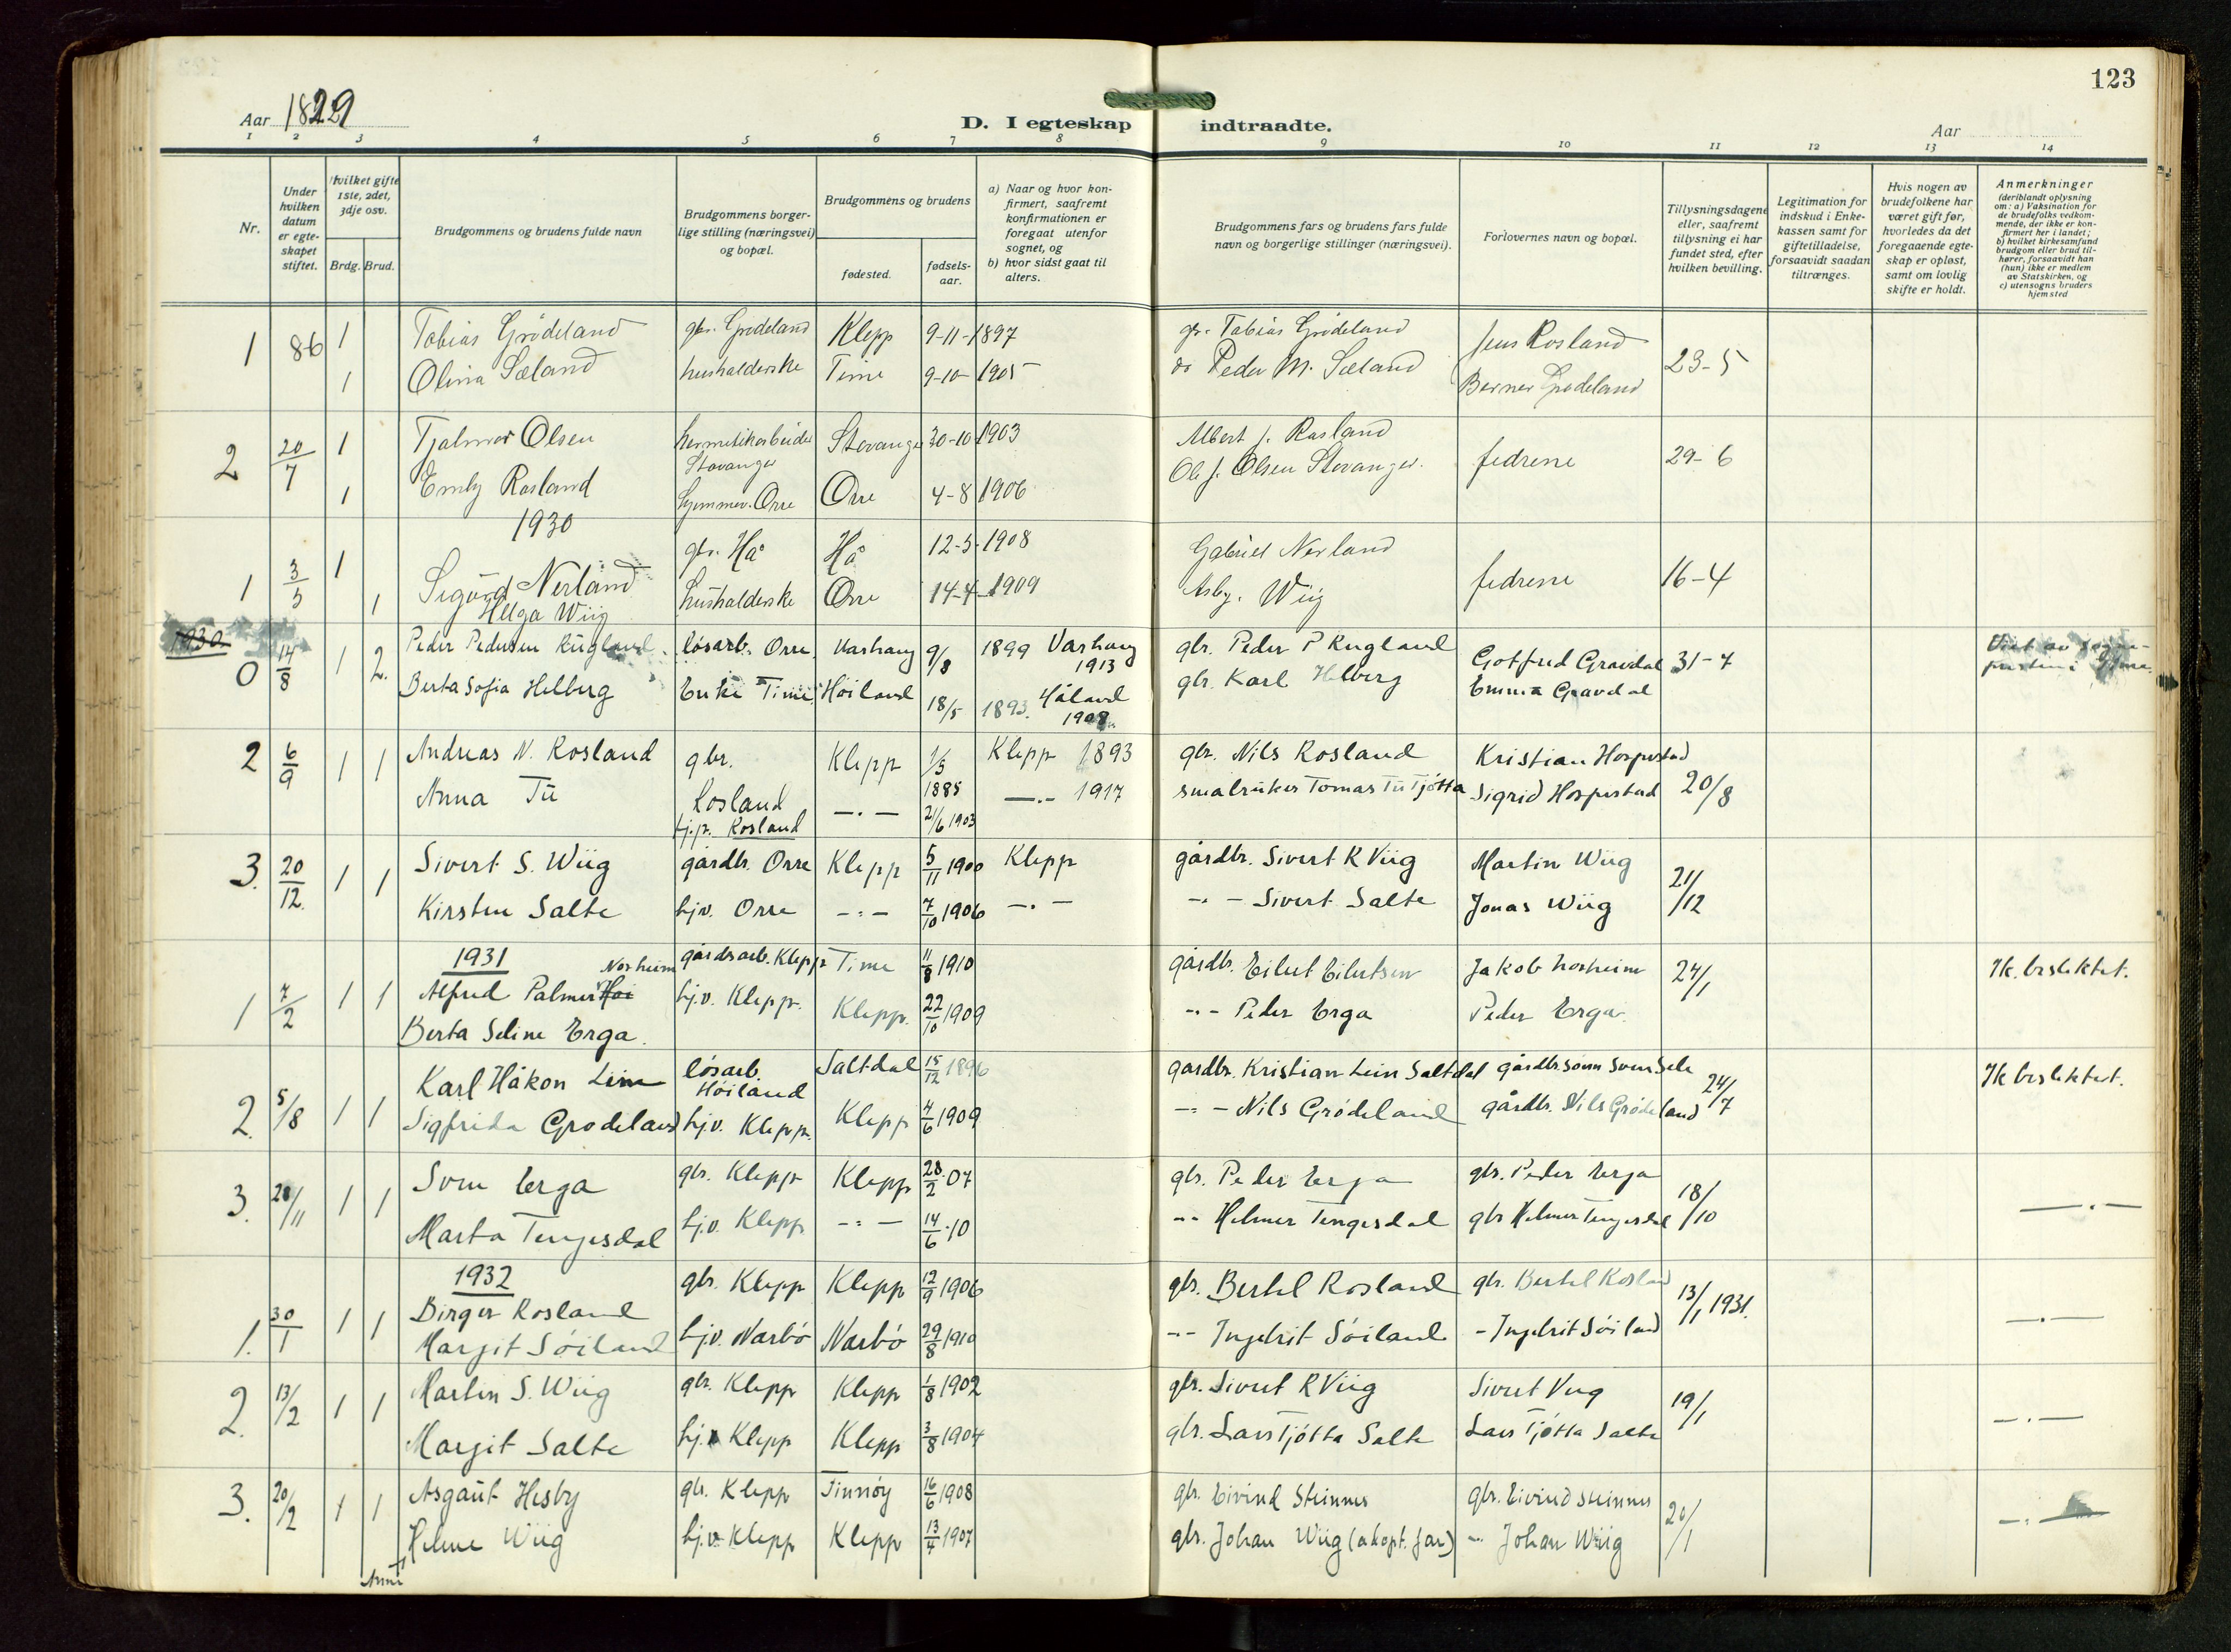 123
Aar 1829
D. I egteskap indtraadte.
Aar
1 2 3 4 5 6 7 8 9 10 11 12 13 14
Nr.
Under hvilken datum er egteskapet stiftet.
Hvilket gifte 1ste, 2det, 3dje osv.
Brdg. Brud.
Brudgommens og brudens fulde navn
Brudgommens borgerlige stilling (næringsvei) og bopæl.
Brudgommens og brudens
fødested.
fødselsaar.
a) Naar og hvor konfirmert, saafremt konfirmationen er foregaat utenfor sognet, og
b) hvor sidst gaat til alters.
Brudgommens fars og brudens fars fulde navn og borgerlige stillinger (næringsvei).
Forlovernes navn og bopæl.
Tillysningsdagene eller, saafremt tillysning ei har fundet sted, efter hvilken bevilling.
Legitimation for indskud i Enkekassen samt for giftetilladelse, forsaavidt saadan tiltrænges.
Hvis nogen av brudefolkene har været gift før, hvorledes da det foregaaende egteskap er opløst, samt om lovlig skifte er holdt.
Anmerkninger (deriblandt oplysning om: a) Vaksination for de brudefolks vedkommende, der ikke er konfirmert her i landet; b) hvilket kirkesamfund brudgom eller brud tilhører, forsaavidt han (hun) ikke er medlem av Statskirken, og c) utensogns bruders hjemsted
1 8-6 1 Tobias Grödeland gbr. Grödeland Klepp 9-11-1897 gbr. Tobias Grödeland Jens Rosland 23-5
1 Olina Sæland husholderske Time 9-10-1905 do Peder M. Sæland Berner Grödeland
2 20/7 1 Tjalmar Olsen hermetikarbeider Stavanger Stavanger 30-10 1903 Albert J. Rosland fedrene 29-6
1 Emly Rosland hjemmev. Orre Orre 4-8 1906 Ole J. Olsen Stavanger.
1930
1 3/5 1 Sigurd Nerland gbr. Hå Hå 12-5-1908 Gabriel Nerland fedrene 16-4
1 Helga Wiig husholderske Orre 14-4-1909 Asbj. Wiig
1930
0 14/8 1 2. Peder Pedersen Rugland. løsarb. Orre. Varhaug 9/8 1899 Varhaug 1913 gbr. Peder P Rugland Gotfred Gravdal 31-7
Berta Sofia Helberg Enke Time Høiland 18/5 1893. Håland 1908. gbr. Karl Helberg Emma Gravdal
2 6/9 1 1 Andreas N. Rosland gbr. Rosland Klepp 1/5 1885 Klepp 1893 gbr. Nils Rosland Kristian Horpestad 20/8
Anna Tu hj.p. Rosland -.- 21/6 1903 -.- 1917 småbruker Tomas Tu Tjøtta Sigrid Horpestad
3. 20/12. 1 1 Sivert S. Wiig gårdbr. Orre Klepp 5/11 1900 Klepp gårdbr. Sivert R Viig Martin Wiig 21/12
Kirsten Salte hjv. Orre -:- 7/10 1906 -.- -:- Sivert Salte Jonas Wiig
1931
1 7/2 1 1 Alfred Palmer Høi Norheim gårdsarb. Klepp Time 11/8 1910 gårdbr. Eilert Eilertsen Jakob Norheim 24/1 Ik. beslektet.
Berta Seline Erga. hj.v. Klepp. Klepp. 22/10 1909 -:- Peder Erga Peder Erga.
2. 5/8 1 1 Karl Håkon Lein løsarb. Høiland Saltdal 15/12 1896 gårdbr. Kristian Lein Saltdal gårdbr.sønn Sven Sele 24/7 Ik beslektet.
Sigfrida Grødeland hjv. Klepp. Klepp 4/6 1909 -:- Nils Grødeland gårdbr. Nils Grødeland
3. 28/11 1 1 Sven Erga gbr. Klepp Klepp 28/2.07 gbr. Peder Erga gbr. Peder Erga 18/10 -.-
Marta Tengesdal hj.v. Klepp -:- 14/6.10 -:- Helmer Tengesdal gbr Helmer Tengesdal
1932
1. 30/1 1 1 Birger Rosland gbr. Klepp Klepp 12/9 1906 gbr. Bertel Rosland gbr. Bertel Rosland 13/1 1931. -.-
Margit Søiland hj.v. Nærbø Nærbø 29/8 1910 -:- Ingebrit Søiland - Ingebrit Søiland
2. 13/2 1 1 Martin S. Wiig gbr. Klepp Klepp 1/8 1902 gbr. Sivert R Viig Sivert Viig 19/1 -.-
Margit Salte hj.v Klepp Klepp 3/8 1904 gbr. Lars Tjøtta Salte Lars Tjøtta Salte
3. 20/2 1 1 Asgaut Hesby gbr. Klepp Finnøy 16/6 1908 gbr. Eivind Steinnes gbr. Eivind Steinnes 20/1 -:-
Helene Wiig hj.v. Klepp Klepp 13/4 1907 gbr. Johan Wiig (adopt. far) -:- Johan Wiig